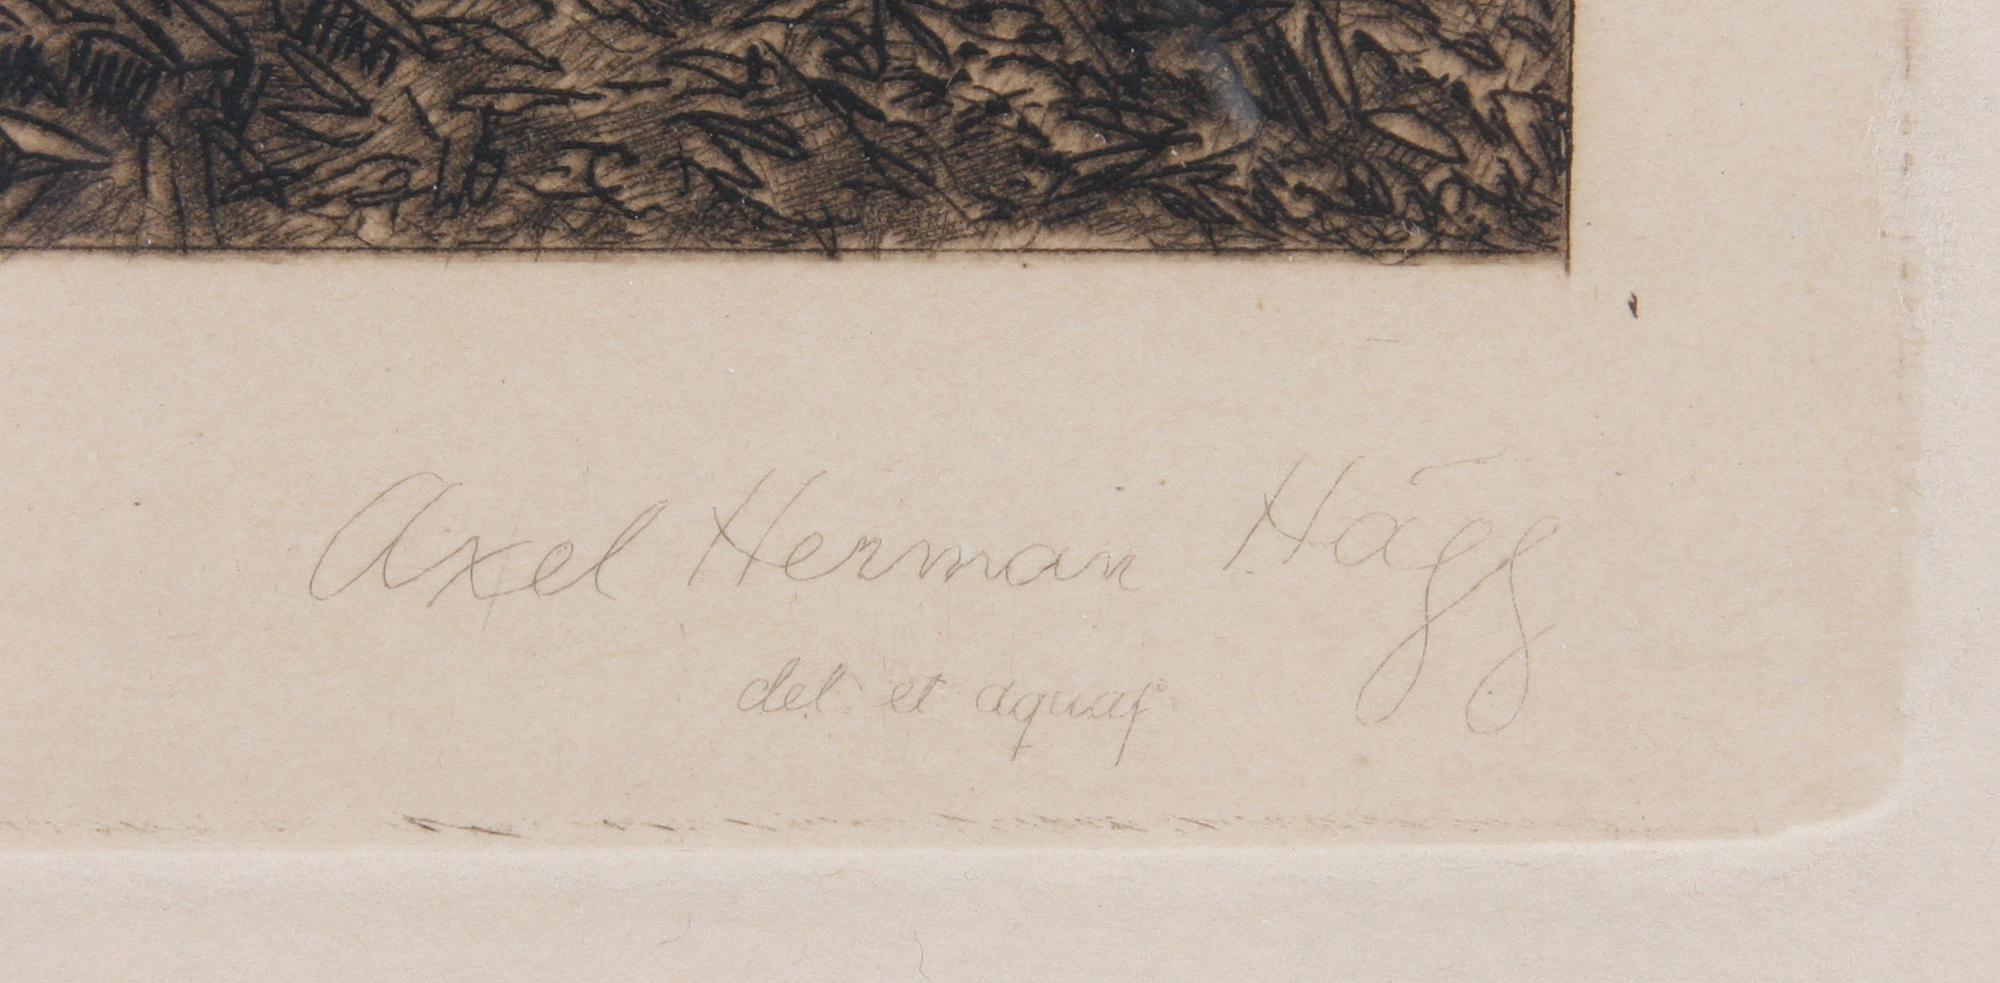 Axel Herman Hägg
del. et aquaf.